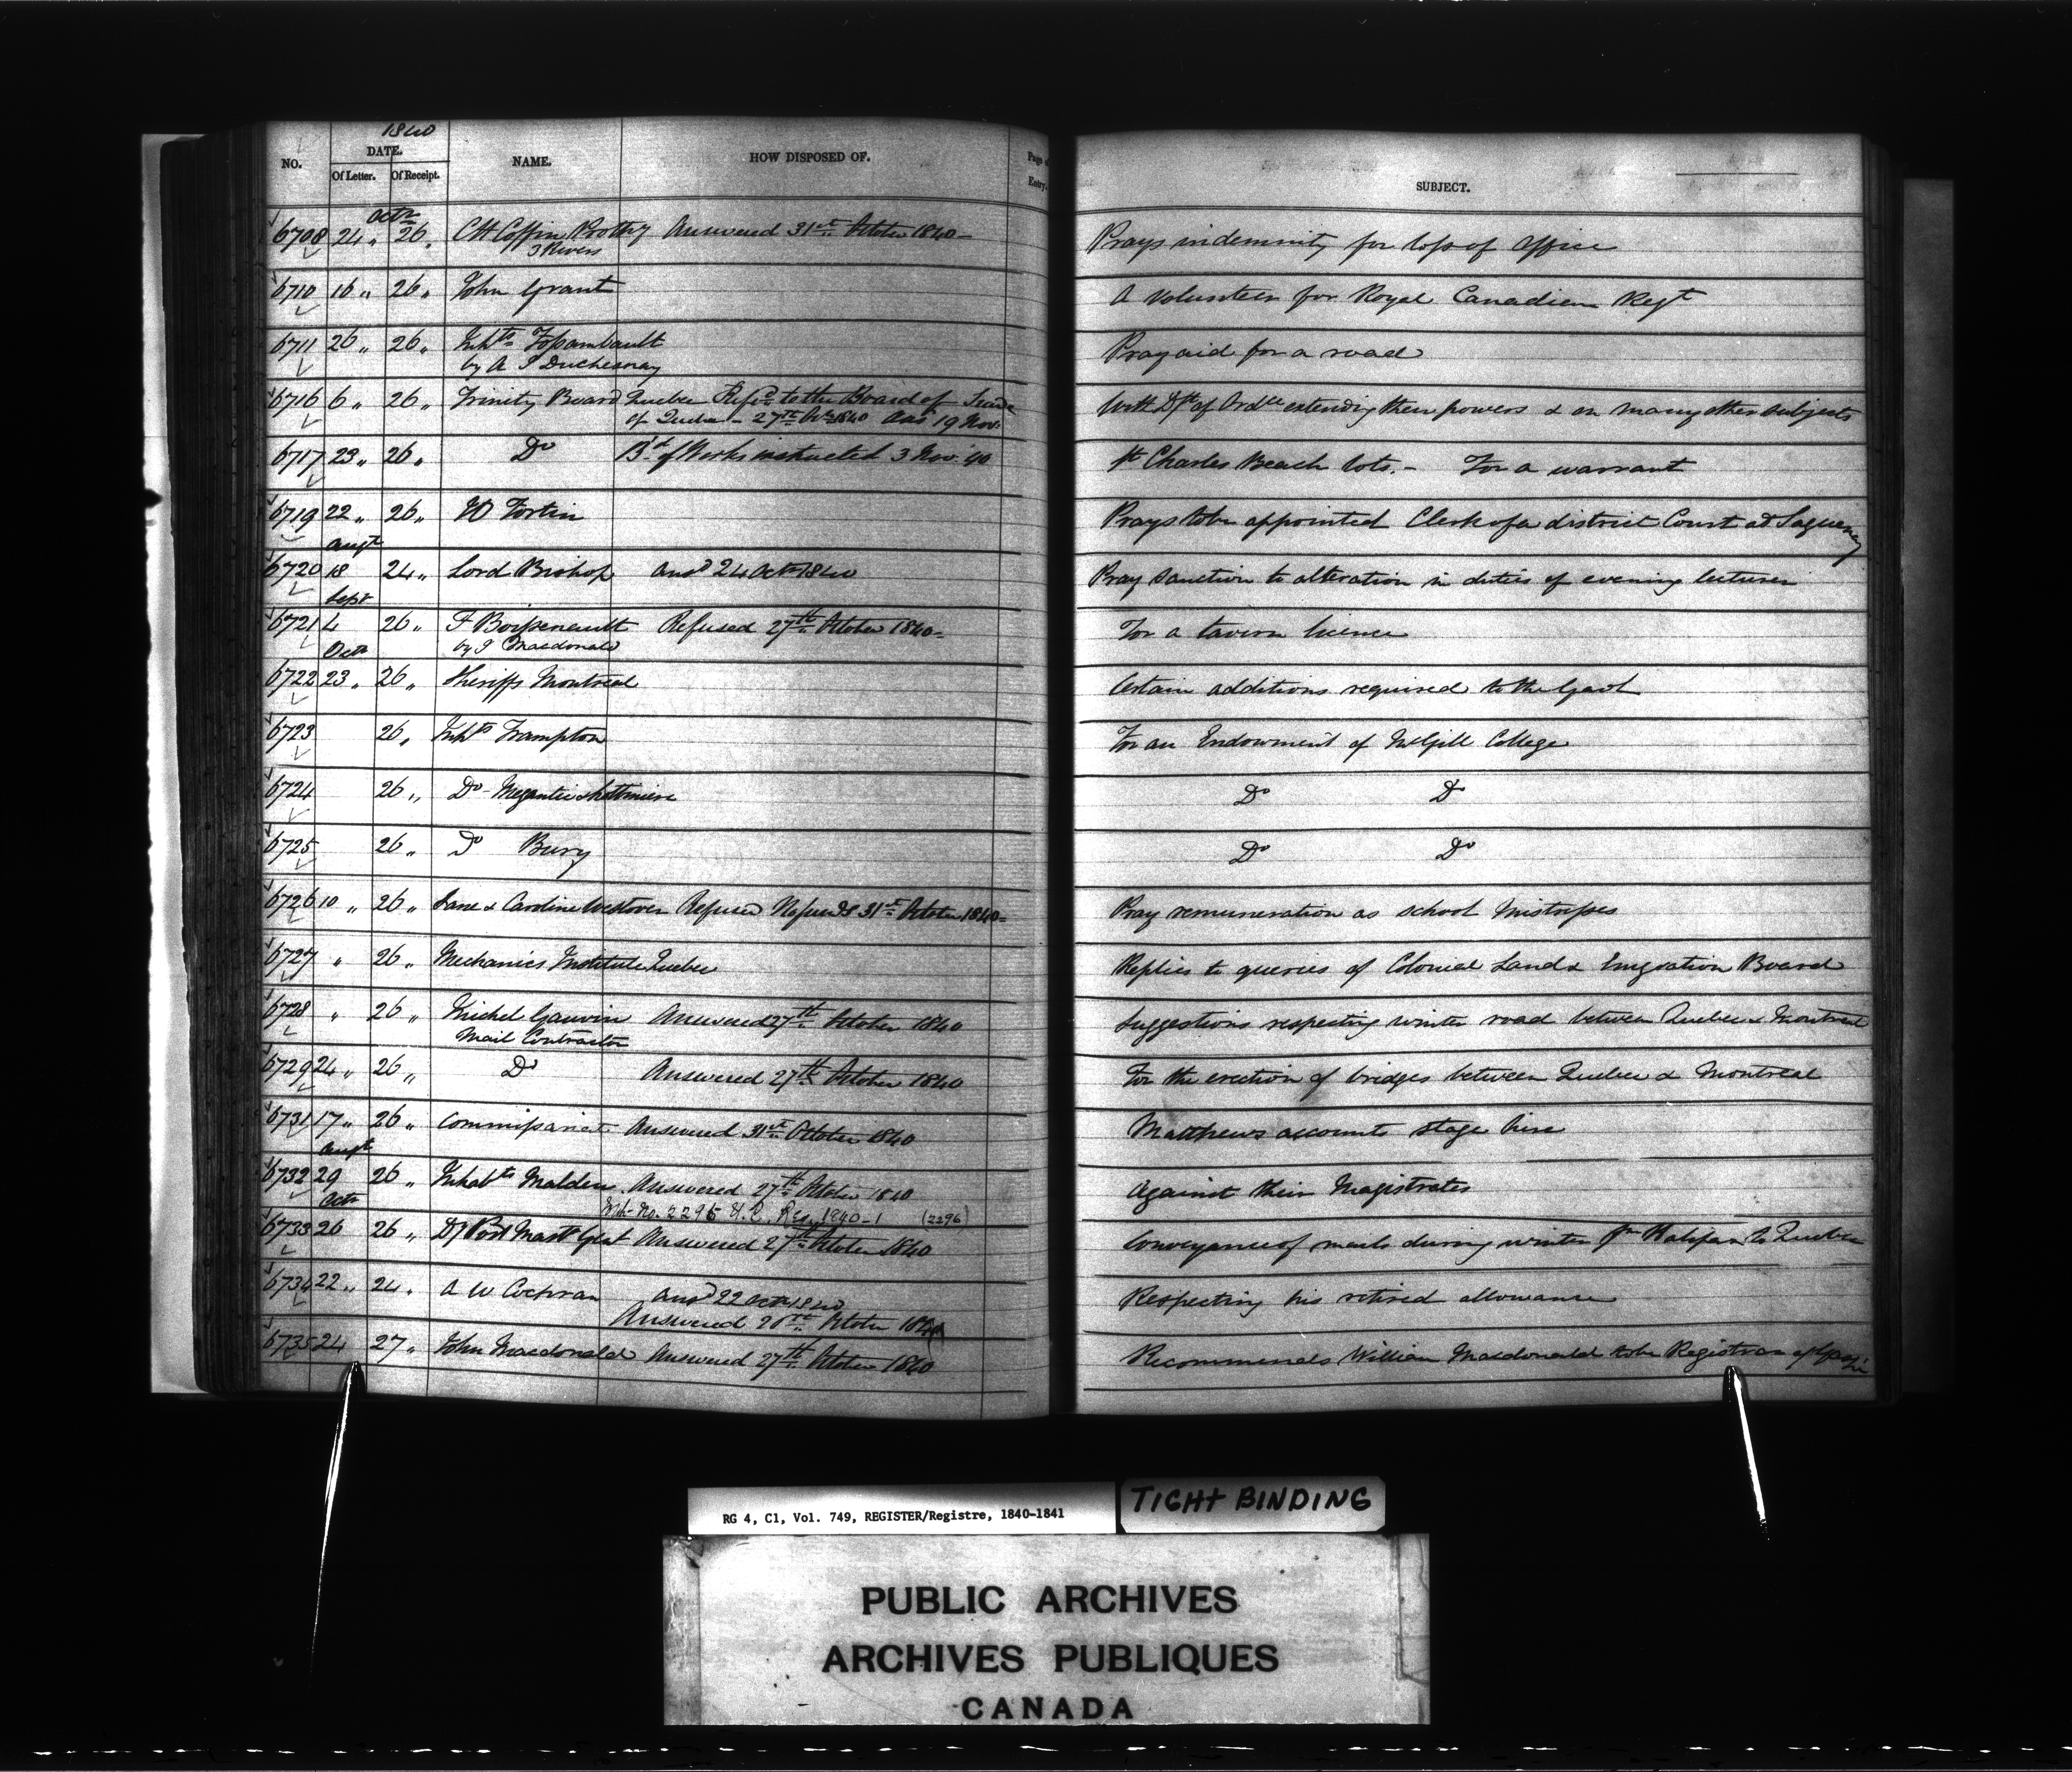 1840
NO. DATE. NAME. HOW DISPOSED OF. Page of Entry. SUBJECT.
Of Letter. Of Receipt.
Octr
6708 24 „ 26 „ CH Coffin Prothy Answered 31st October 1840 — Prays indemnity for loss of Office
3 Rivers
6710 16 „ 26 „ John Grant A Volunteer for Royal Canadian Regt
6711 26 „ 26 „ Inhts Fossambault Pray aid for a road
by A J Duchesnay
6716 6 „ 26 „ Trinity Board Quebec Refd to the Board of Trade With Dft of Ordce extending their powers & on many other subjects
of Quebec – 27th Octr 1840 Ansd 19 Nov.
6717 23 „ 26 „ Do Bd of Works instructed 3 Nov. 40 St Charles Beach lots. – For a warrant
6719 22 „ 26 „ Fortin Prays to be appointed Clerk of a district Court at Saguenay
Augt
6720 18 24 „ Lord Bishop Ansd 24 Octr 1840 Pray sanction to alteration in duties of evening lecturer
Sept
6721 4 26 „ F Boissenault Refused 27th October 1840 – For a tavern licence
by J Macdonald
Octr
6722 23 „ 26 „ Sheriffs Montreal Certain additions required to the Gaol
6723 26 „ Inhts Frampton For an Endowment of McGill College
6724 26 „ Do – Megantic Do Do
6725 26 „ Do Bury Do Do
6726 10 „ 26 „ Jane & Caroline Westover Refused No funds 31st October 1840 = Pray remuneration as school Mistresses
6727 „ 26 „ Mechanics Institute Quebec Replies to queries of Colonial Land & Emigration Board
6728 „ 26 „ Michel Gauvin Answered 27th October 1840 Suggestions respecting winter road between Quebec & Montreal
Mail Contractor
6729 24 „ 26 „ Do Answered 27th October 1840 For the erection of bridges between Quebec & Montreal
6731 17 „ 26 „ Commissariat Answered 31st October 1840 Matthews accounts stage hire
Augt
6732 29 26 „ Inhabts Malden Answered 27th October 1840 Against their Magistrates
Octr With No. 2295 U.C. Reg. 1840–1 (2296)
6733 26 26 „ Dy Post Mastr Genl Answered 27th October 1840 Conveyance of mails during winter fm Halifax to Quebec
6734 22 „ 24 „ A W Cochran Ansd 22 Octr 1840 Respecting his retired allowance
Answered 28th October 1840
6735 24 27 „ John Macdonald Answered 27th October 1840 Recommends William Macdonald to be Registrar of Gaspé
RG 4, C1, Vol. 749, REGISTER/Registre, 1840-1841
TIGHT BINDING
PUBLIC ARCHIVES
ARCHIVES PUBLIQUES
CANADA